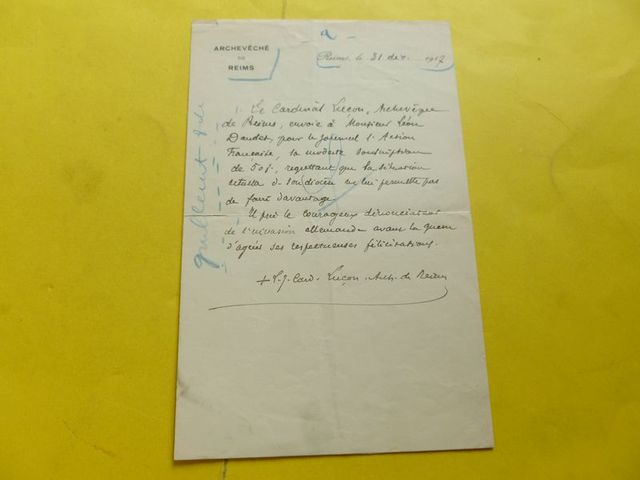 a
ARCHEVÊCHÉ
DE
REIMS
Reims, le 31 déc. 1917
Le Cardinal Luçon, Archevêque
de Reims, envoie à Monsieur Léon
Daudet, pour le journal l'Action
Française, sa modeste souscription
de 50 f., regrettant que la situation
actuelle de son diocèse ne lui permette pas
de faire davantage.
Il prie le courageux dénonciateur
de l'invasion allemande avant la guerre
d'agréer ses respectueuses félicitations.
+ L. J. Card. Luçon. Arch. de Reims
guillemets